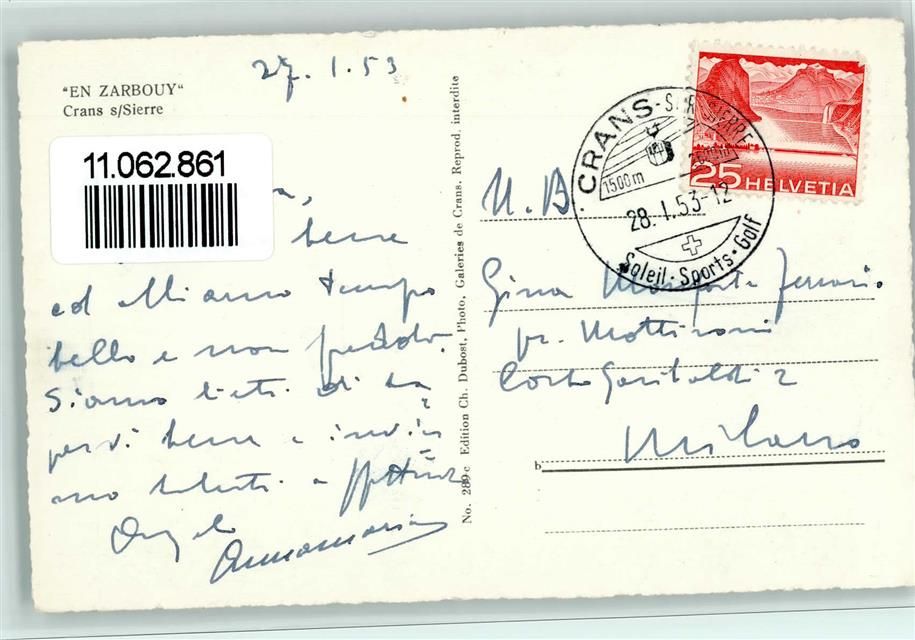 27.1.53
"EN ZARBOUY"
Crans s/Sierre
11.062.861
bene
ed abbiamo tempo
bello e non freddo.
Siamo lieti di sa
pervi bene e invia
mo saluti e
Angelo
Annamaria
No. 289c Edition Ch. Dubost, Photo, Galeries de Crans. Reprod. interdite
CRANS-S/R SIERRE
1500 m
28.1.53-12
Soleil·Sports·Golf
25 HELVETIA
N.B
Gina Ferrari
pr. Mottironi
Corso Garibaldi 2
Milano